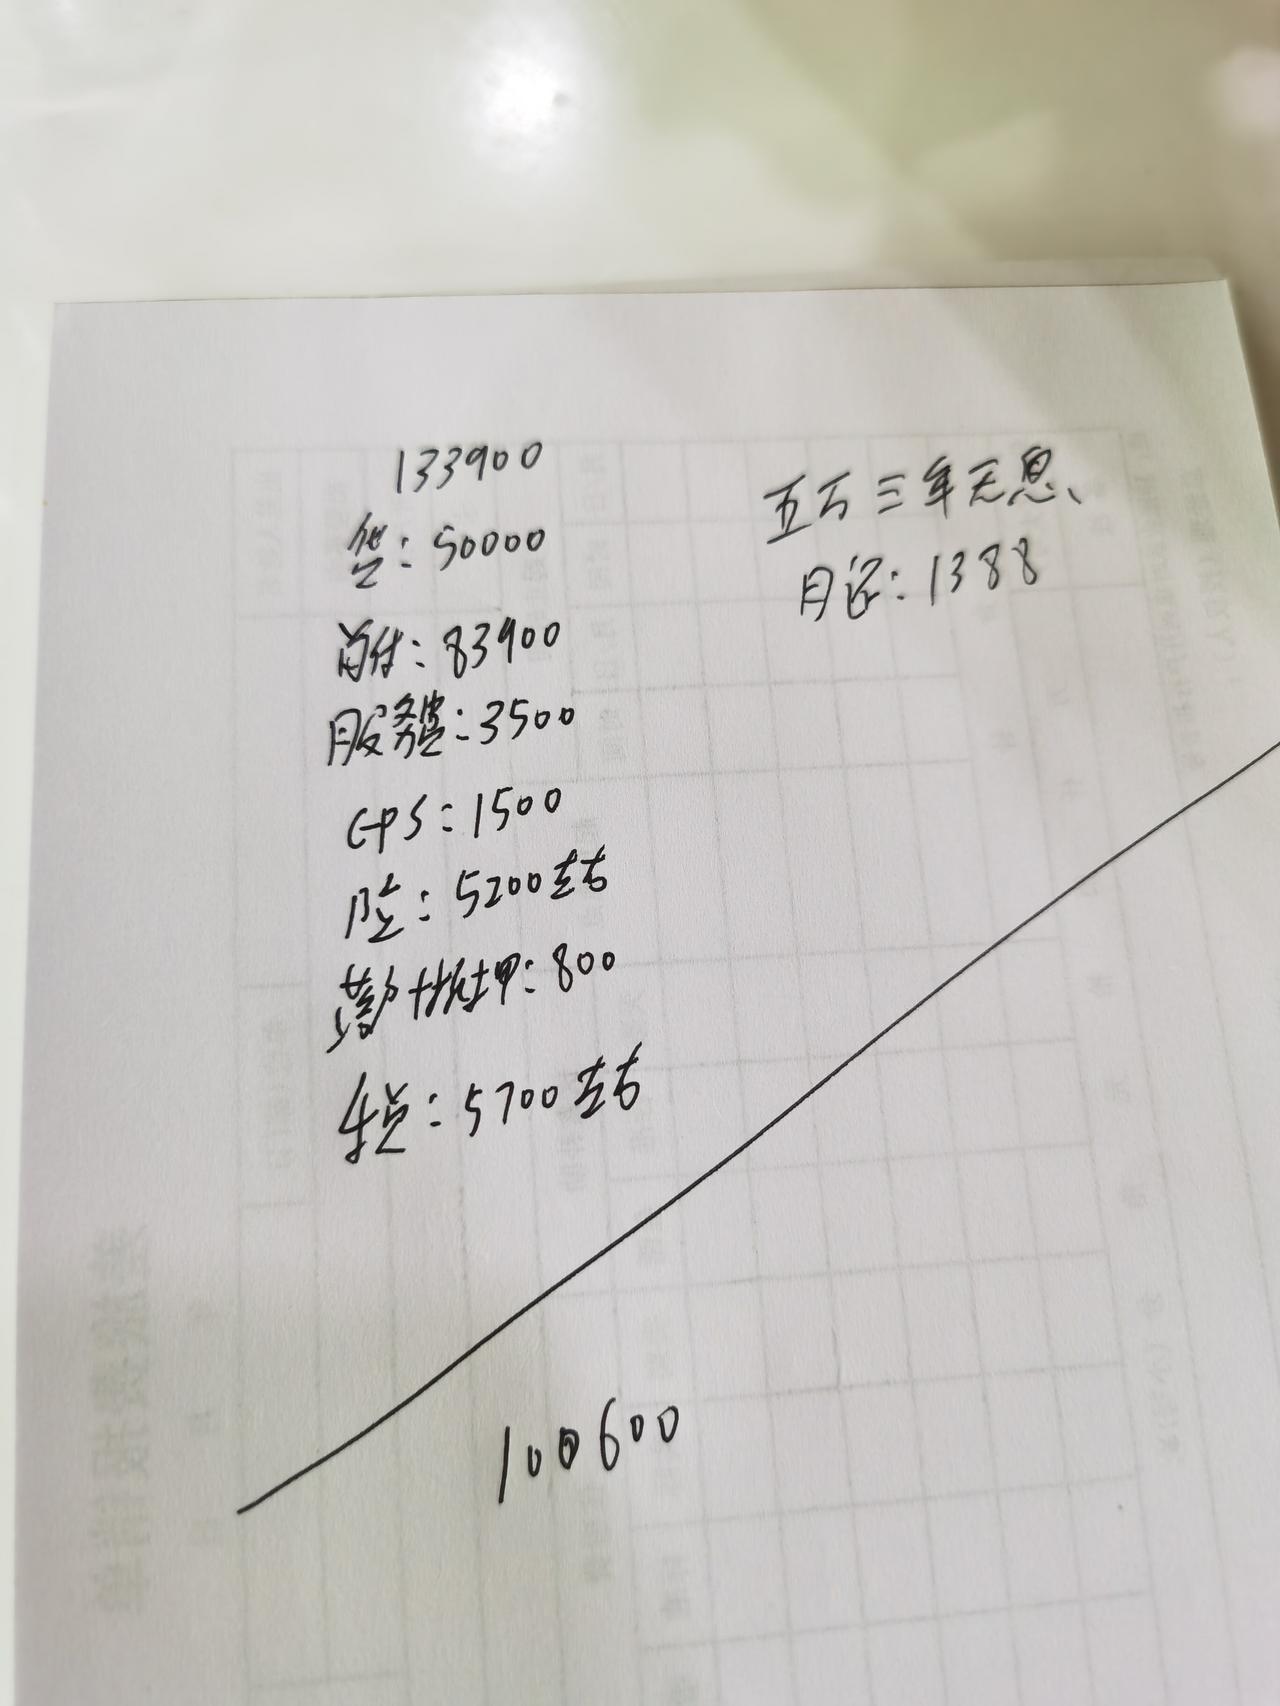 133900
贷：50000
首付：83900
服务费：3500
GPS：1500
险：5200左右
落户抵押：800
税：5700左右
五万三年无息、
月还：1388
100600